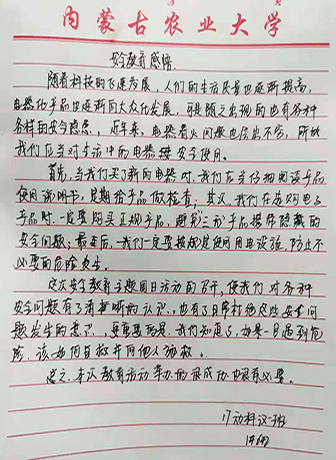 内蒙古农业大学
安全教育感悟
随着科技的飞速发展，人们的生活质量也逐渐提高，
电器化产品也逐渐向大众化发展，可是随之出现的也有各种
各样的安全隐患，近年来，电器着火问题也层出不穷，所以
我们应当对生活中的电器 安全使用。
首先，当我们买了新的电器时，我们应当仔细阅读产品
使用说明书，定期给产品做检查；其次，我们在选购电子
产品时一定要购买正规产品，避免三无产品携带隐藏的
安全问题；最后，我们一定要按规定使用用电设施，防止不
必要的危险发生。
这次安全教育主题团日活动的召开，使我们对各种
安全问题有了清晰的认识，也有了日常杜绝这些安全问
题发生的意识，更重要的是，我们知道了，如果一旦遇到危
险，该如何自救并向他人施救。
总之，本次教育活动举办的很成功也很有必要。
17动科汉一班